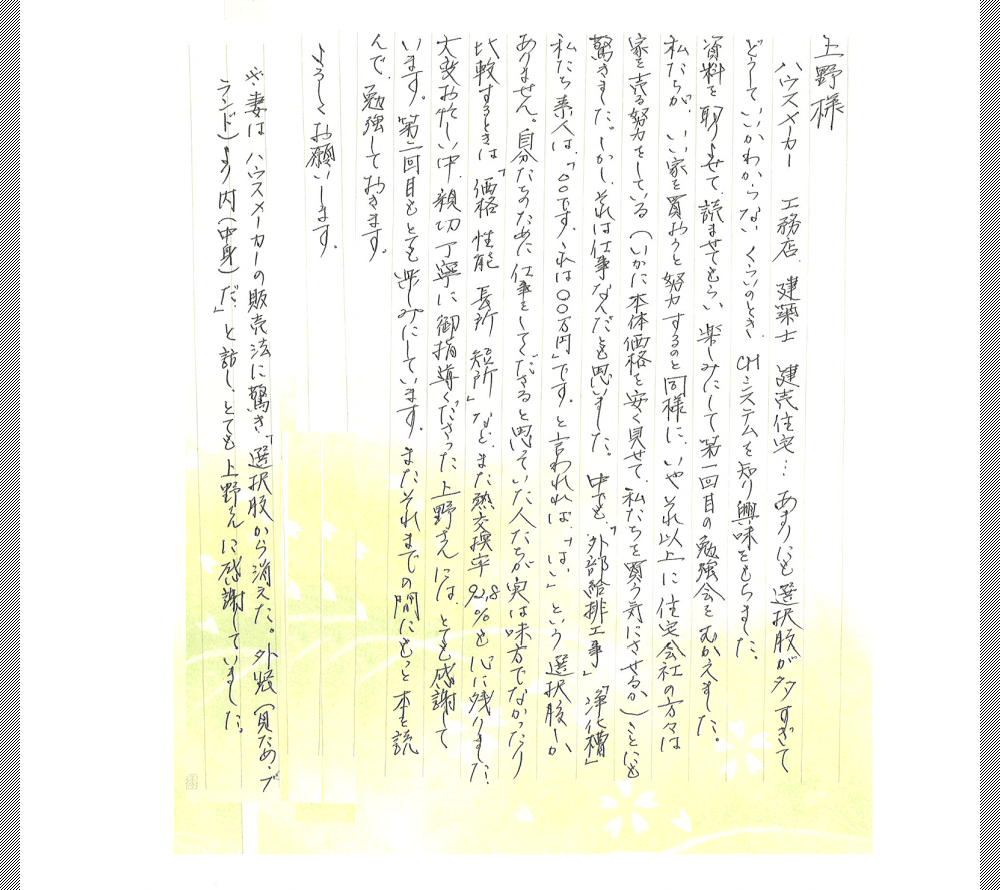 上野様
ハウスメーカー 工務店 建築士 建売住宅… あまりにも選択肢が多すぎて
どうしていいかわからないくらいのとき、CMシステムを知り興味をもちました。
資料を取りよせて、読ませてもらい、楽しみにして第一回目の勉強会をむかえました。
私たちが、いい家を買おうと努力するのと同様に、いやそれ以上に住宅会社の方々は
家を売る努力をしている(いかに本体価格を安く見せて、私たちを買う気にさせるか)ことにも
驚きました。しかし、それは仕事なんだとも思いました。中でも「外部給排工事」「浄化槽」
私たち素人は、「〇〇です。これは〇〇万円」です。と言われれば、「はい」という選択肢しか
ありません。自分たちのために仕事をしてくださると思っていた人たちが実は味方でなかったり
比較するときは「価格 性能 長所 短所」など、また熱交換率92.8%も心に残りました。
大変お忙しい中、親切丁寧に御指導くださった上野さんには、とても感謝して
います。第二回目もとても楽しみにしています。またそれまでの間にもっと本を読
んで、勉強しておきます。
よろしくお願いします。
※妻は ハウスメーカーの販売法に驚き、「選択肢から消えた。外装(見ため・ブ
ランド)より内(中身)だ」と話し、とても上野さんに感謝していました。